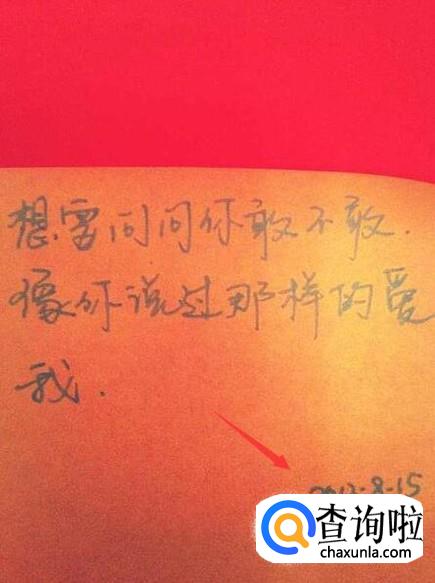 想要问问你敢不敢.
像你说过那样的爱
我.
8-15
查询啦
chaxunla.com